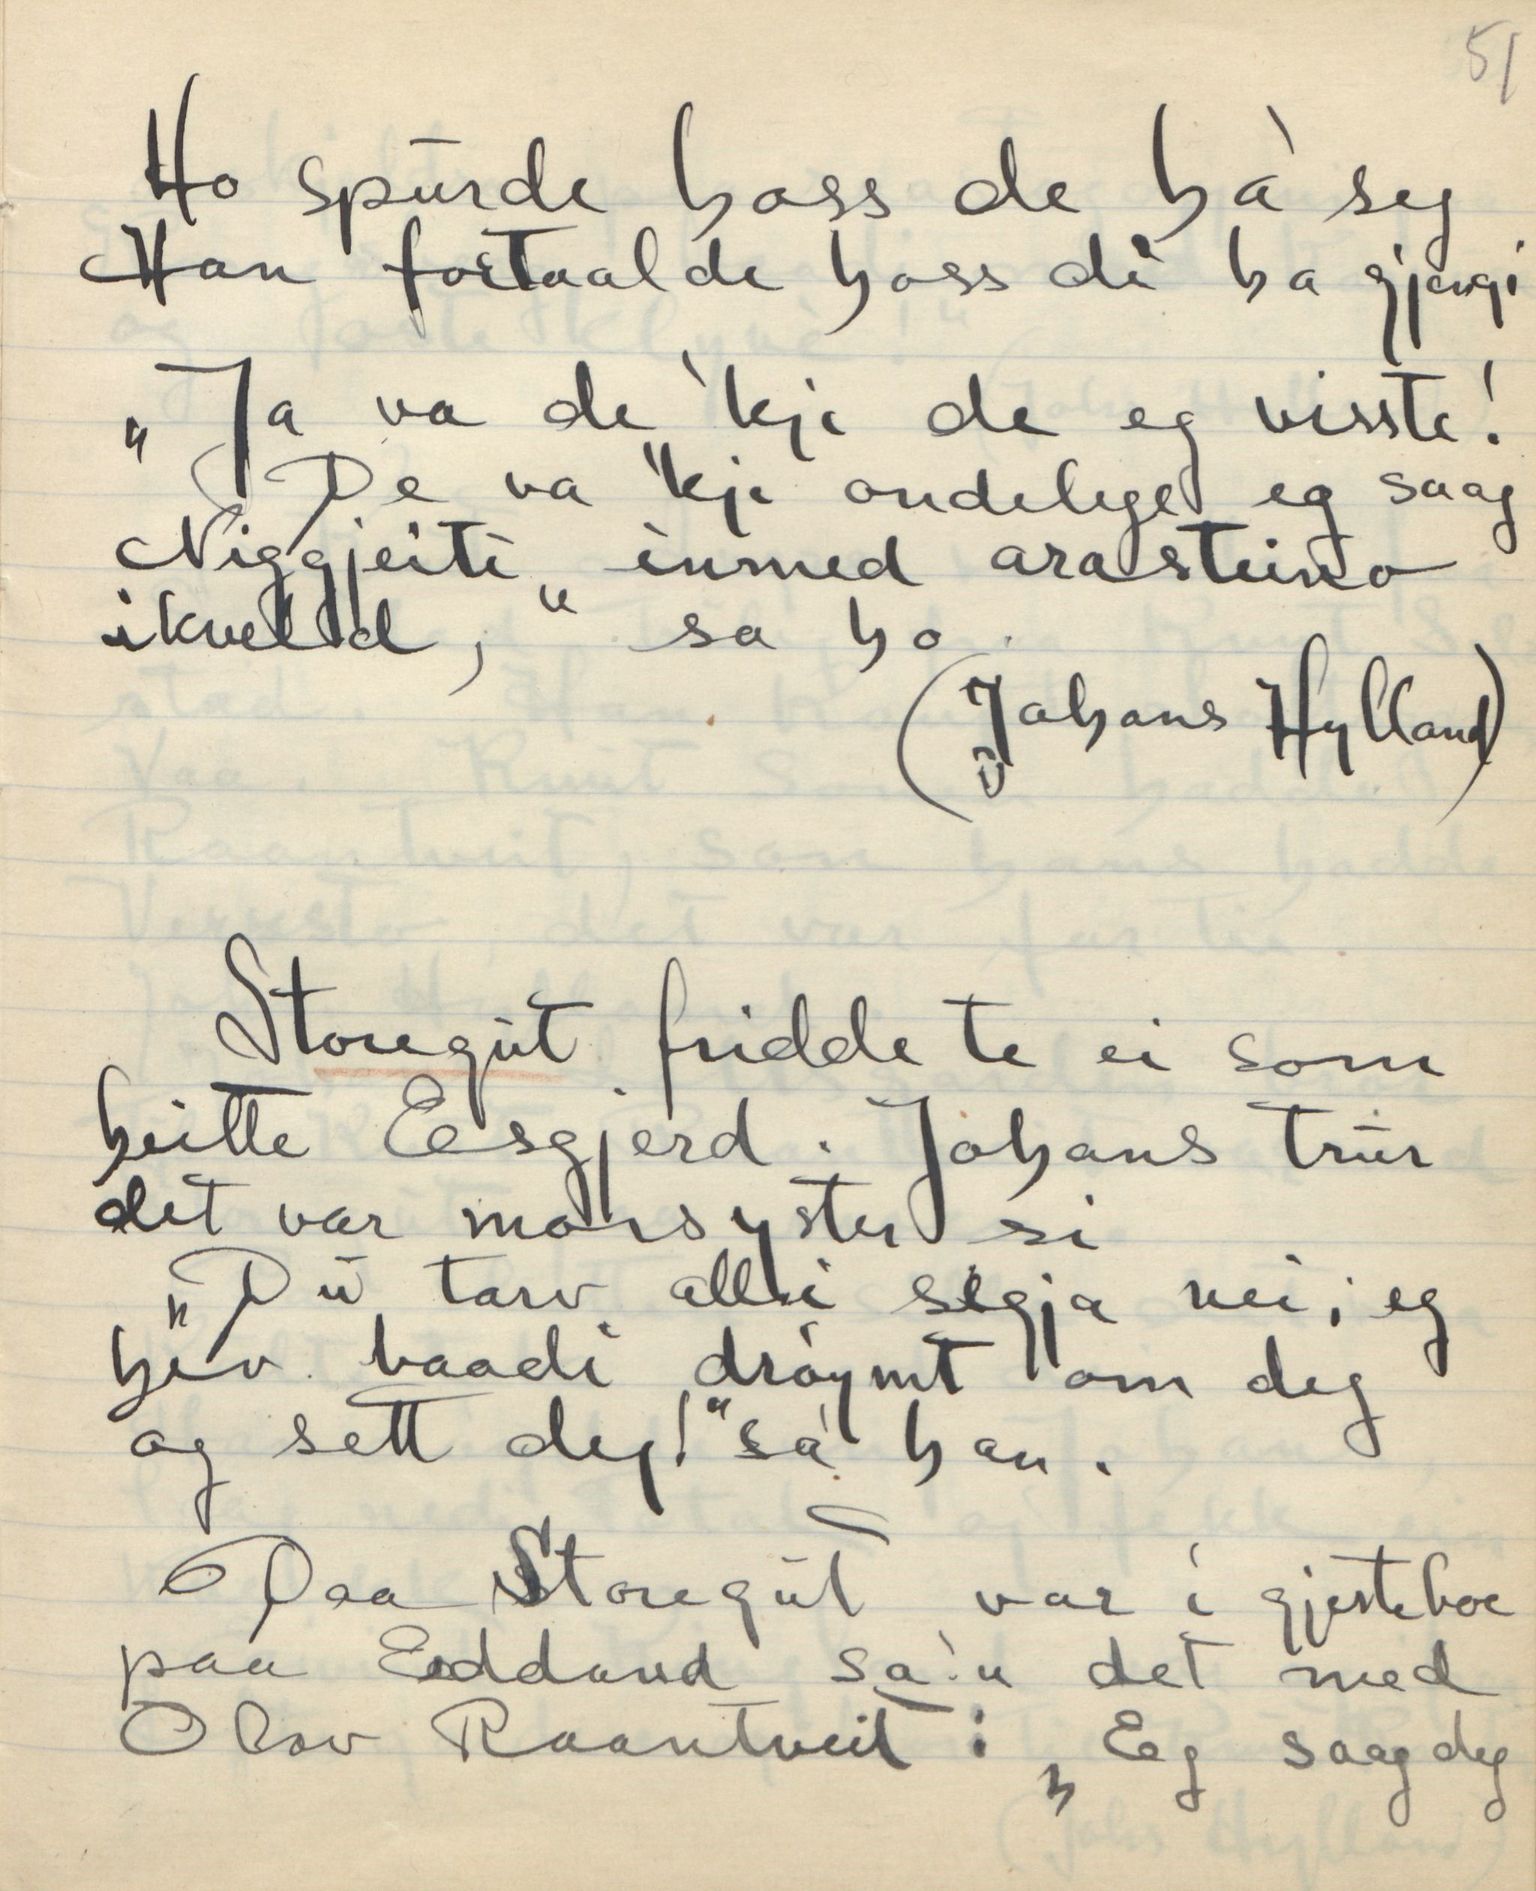 51
Ho spurde hoss de ha' seg
Han fortaalde hoss di ha gjengi
"Ja va de 'kje de eg visste!
De va 'kje ondelege eg saag
Niggjeiti inmed arasteino
ikveld," sa ho.
(Johans Hylland)
Storegut fridde te ei som
heitte Eesgjerd. Johans trur
det var morsyster si
"Du tarv alli segja nei; eg
hev baadi drøymt om deg
og sett deg!" sa' han.
Daa Storegut var i gjesteboe
paa Eddand sa'n det med
Olav Raantveit: "Eg saag deg